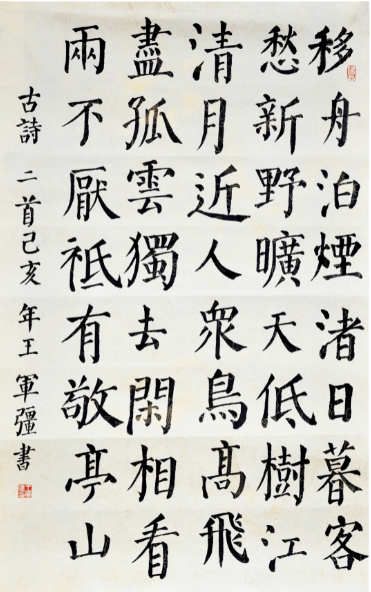 移舟泊煙渚日暮客
愁新野曠天低樹江
清月近人眾鳥高飛
盡孤雲獨去閑相看
兩不厭祗有敬亭山
古詩二首己亥年王軍彊書